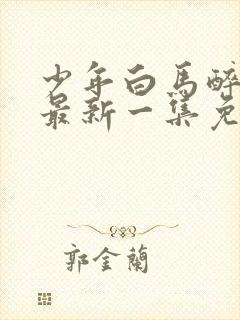 少年白馬醉
最新一集免
郭金蘭